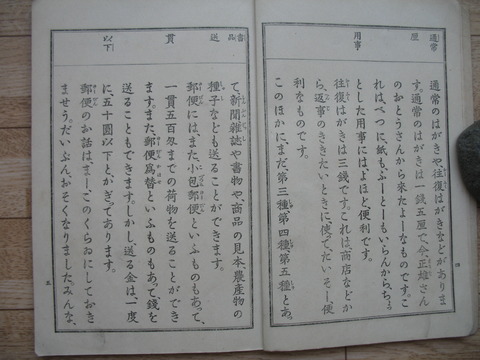 通常
厘
用事
通常のはがきや、往復はがきなどがありま
す。通常のはがきは一銭五厘で、今、正雄さん
のおとうさんから来たよーなものです。こ
れは、べつに、紙もふーとーもいらんから、ちょっ
とした用事には、よほど、便利です。
往復はがきは三銭です。これは、商店などか
ら、返事のききたいときに、使って、だいそー便
利なものです。
このほかに、まだ、第三種第四種第五種とあっ
四
商品
送
貫
以下
て、新聞雑誌や書物や、商品の見本、農産物の
種子なども送ることができます。
郵便には、また、小包郵便といふものもあって、
一貫五百匁までの荷物を送ることができ
ます。また、郵便為替といふものもあって、銭を
送ることもできます。しかし、送る金は、一度
に、五十圓以下と、かぎってあります。
郵便のお話は、まー、このくらゐにしておき
ませう。だいぶん、おそくなりました。みんな、
五